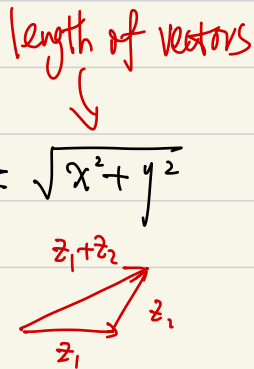 length of vectors
= √x²+y²
z₁+z₂
z₂
z₁